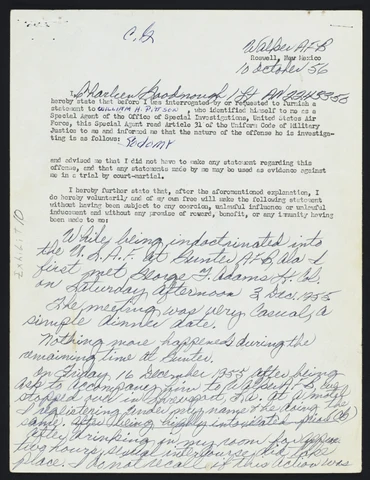 C.G
Walker AFB
Roswell, New Mexico
10 October 56
I, Charleen Goodnough 1st Lt
hereby state that before I was interrogated by or requested to furnish a
statement to WILLIAM H. PITTSON, who identified himself to me as a
Special Agent of the Office of Special Investigations, United States Air
Force, this Special Agent read Article 31 of the Uniform Code of Military
Justice to me and informed me that the nature of the offense he is investiga-
ting is as follows:
SODOMY
and advised me that I did not have to make any statement regarding this
offense, and that any statements made by me may be used as evidence against
me in a trial by court-martial.
I hereby further state that, after the aforementioned explanation, I
do hereby voluntarily and of my own free will make the following statement
without having been subject to any coercion, unlawful influence or unlawful
inducement and without any promise of reward, benefit, or any immunity having
been made to me:
EXHIBIT
While being indoctrinated into
the U.S.A.F. at Gunter AFB Ala I
first met George F. Adams Lt. Col.
on Saturday afternoon 3 Dec. 1955
The meeting was very casual, a
simple dinner date.
Nothing more happened during the
remaining time at Gunter.
on Friday, 16 December 1955 after being
ask to accompany him to Walker AFB, we
stopped over in Shreveport, La. at a motel
I registering under my name & he doing the
same. After being highly intoxicated from
after drinking in my room for
two hours, sexual intercourse did take
place. I do not recall if this action was